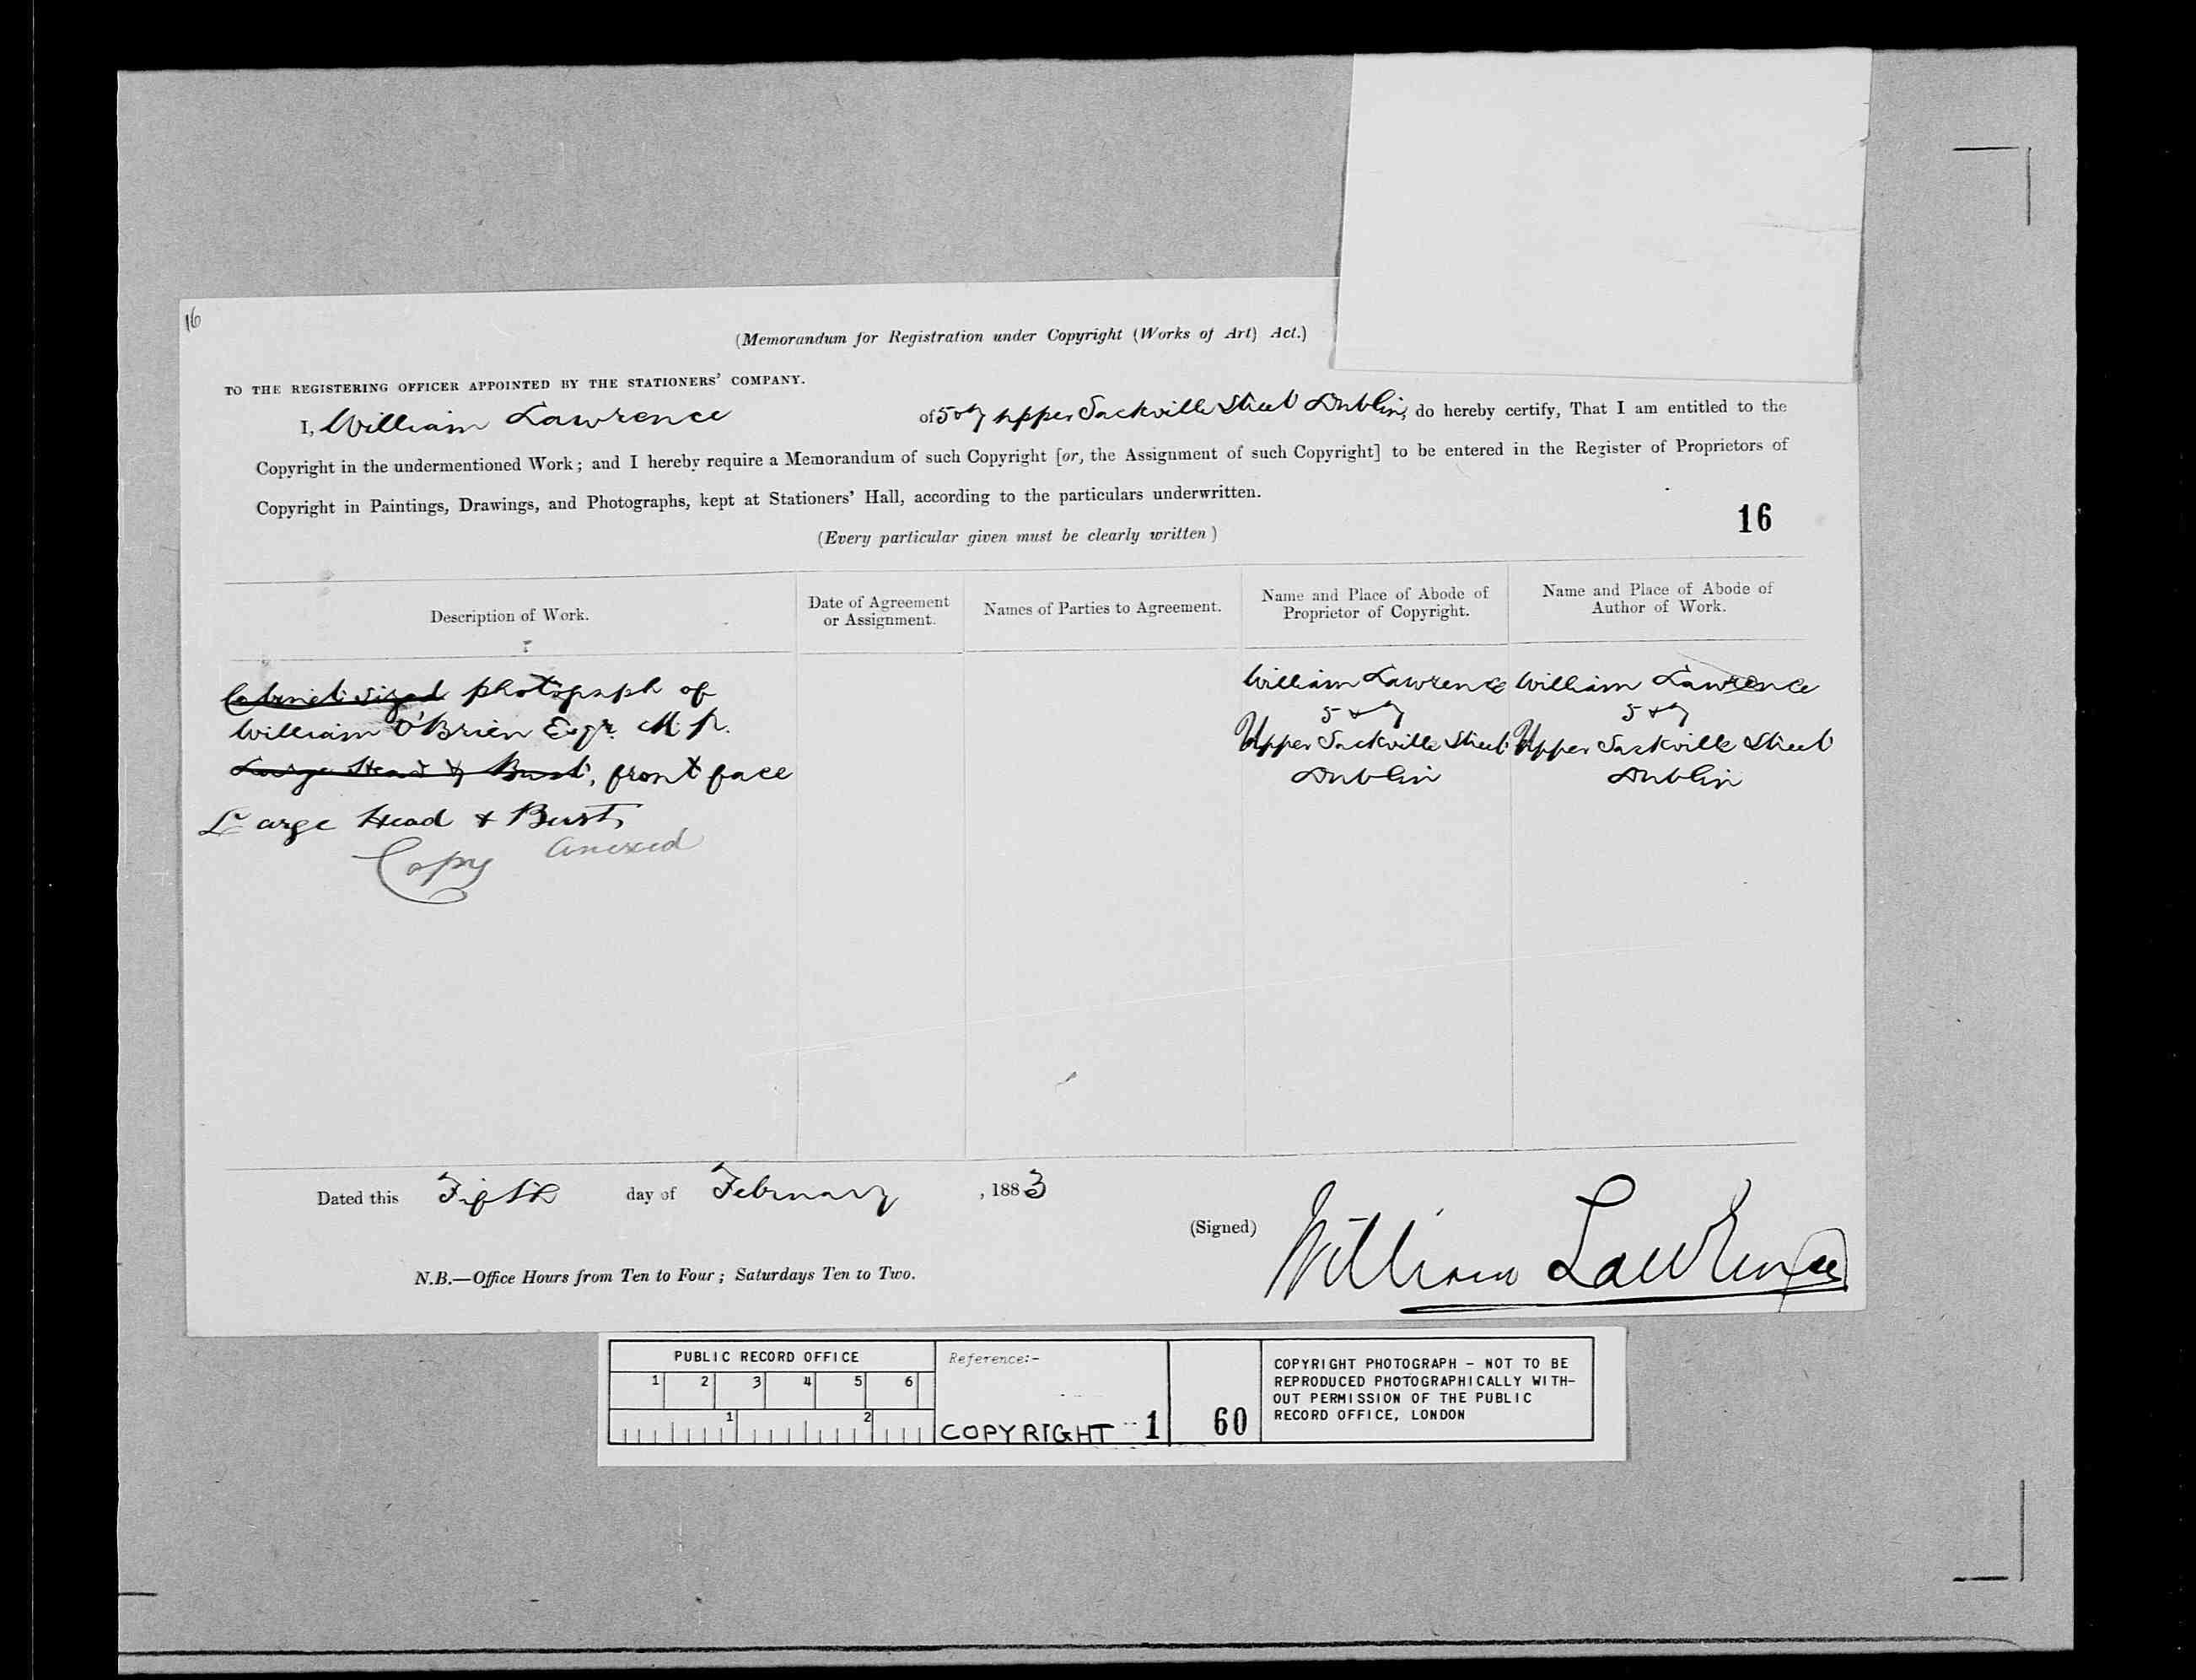 16
(Memorandum for Registration under Copyright (Works of Art) Act.)
TO THE REGISTERING OFFICER APPOINTED BY THE STATIONERS' COMPANY.
I, William Lawrence of 5 & 7 Upper Sackville Street Dublin, do hereby certify, That I am entitled to the
Copyright in the undermentioned Work; and I hereby require a Memorandum of such Copyright [or, the Assignment of such Copyright] to be entered in the Register of Proprietors of
Copyright in Paintings, Drawings, and Photographs, kept at Stationers' Hall, according to the particulars underwritten.
16
(Every particular given must be clearly written)
Description of Work.
Date of Agreement
or Assignment.
Names of Parties to Agreement.
Name and Place of Abode of
Proprietor of Copyright.
Name and Place of Abode of
Author of Work.
Cabinet sized photograph of
William O'Brien Esqr. M.P.
Large Head & Bust, front face
Large Head & Bust,
Copy anexed
William Lawrence
5 & 7
Upper Sackville Street
Dublin
William Lawrence
5 & 7
Upper Sackville Street
Dublin
Dated this Fifth day of February, 1883
(Signed) William Lawrence
N.B.—Office Hours from Ten to Four; Saturdays Ten to Two.
PUBLIC RECORD OFFICE
1 2 3 4 5 6
1 2
Reference:-
COPYRIGHT 1 60
COPYRIGHT PHOTOGRAPH - NOT TO BE
REPRODUCED PHOTOGRAPHICALLY WITH-
OUT PERMISSION OF THE PUBLIC
RECORD OFFICE, LONDON